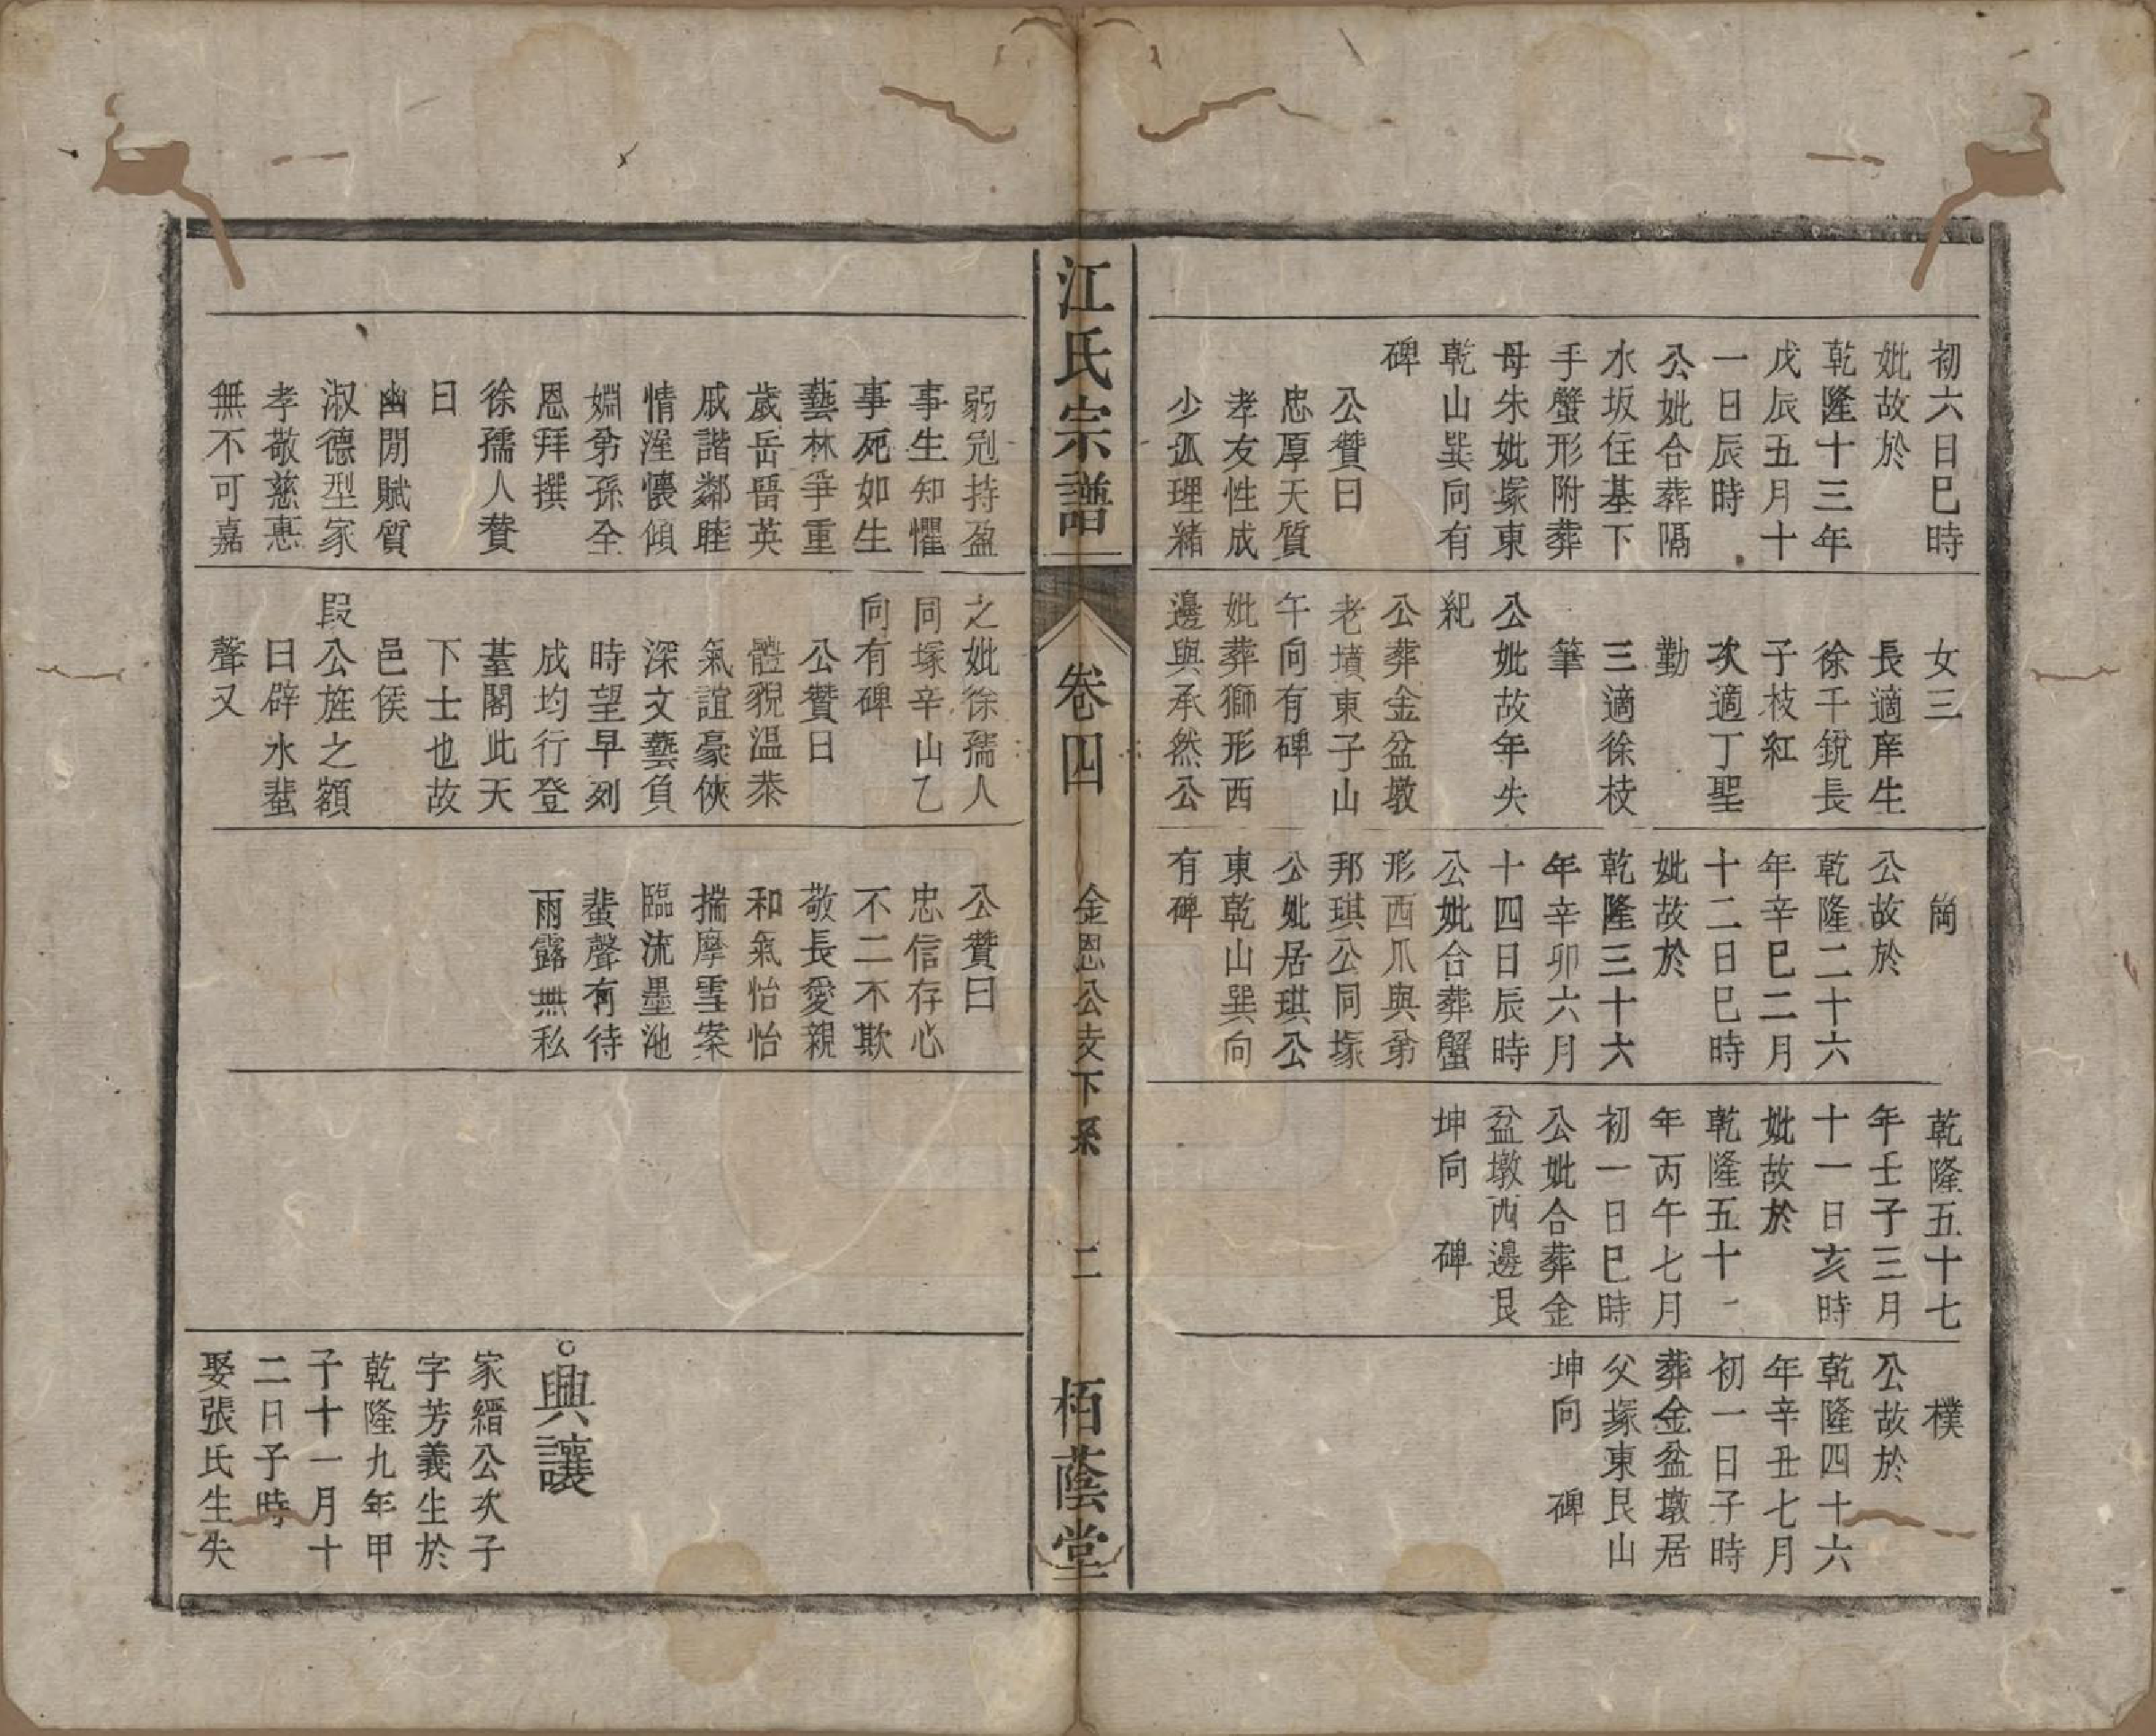 初六日巳時
妣故於
乾隆十三年
戊辰五月十
一日辰時
公妣合葬隔
水坂住基下
手蟹形附葬
母朱妣塚東
乾山巽向有
碑
公贊曰
忠厚天質
孝友性成
少孤理緒
女三
長適庠生
徐千銳長
子枝紅
次適丁聖
勤
三適徐枝
筆
公妣故年失
紀
公葬金盆墩
老墳東子山
午向有碑
妣葬獅形西
邊與承然公
崗
公故於
乾隆二十六
年辛巳二月
十二日巳時
妣故於
乾隆三十六
年辛卯六月
十四日辰時
公妣合葬蟹
形西爪與弟
邦琪公同塚
公妣居琪公
東乾山巽向
有碑
乾隆五十七
年壬子三月
十一日亥時
妣故於
乾隆五十一
年丙午七月
初一日巳時
公妣合葬金
盆墩西邊艮
坤向 碑
樸
公故於
乾隆四十六
年辛丑七月
初一日子時
葬金盆墩居
父塚東艮山
坤向 碑
江氏宗譜
卷四
金恩公支下系
二
栢蔭堂
弱冠持盈
事生知懼
事死如生
藝林爭重
歲岳畱英
戚諧鄰睦
情滛懷傾
姻弟孫全
恩拜撰
徐孺人贊
曰
幽閒賦質
淑德型家
孝敬慈惠
無不可嘉
之妣徐孺人
同塚辛山乙
向有碑
公贊曰
體貌溫恭
氣誼豪俠
深文藝負
時望早列
成均行登
䑓閣此天
下士也故
邑侯
叚公旌之額
曰辟水蜚
聲又
公贊曰
忠信存心
不二不欺
敬長愛親
和氣怡怡
揣摩雪案
臨流墨池
蜚聲有待
雨露無私
○興讓
家縉公次子
字芳義生於
乾隆九年甲
子十一月十
二日子時
娶張氏生失